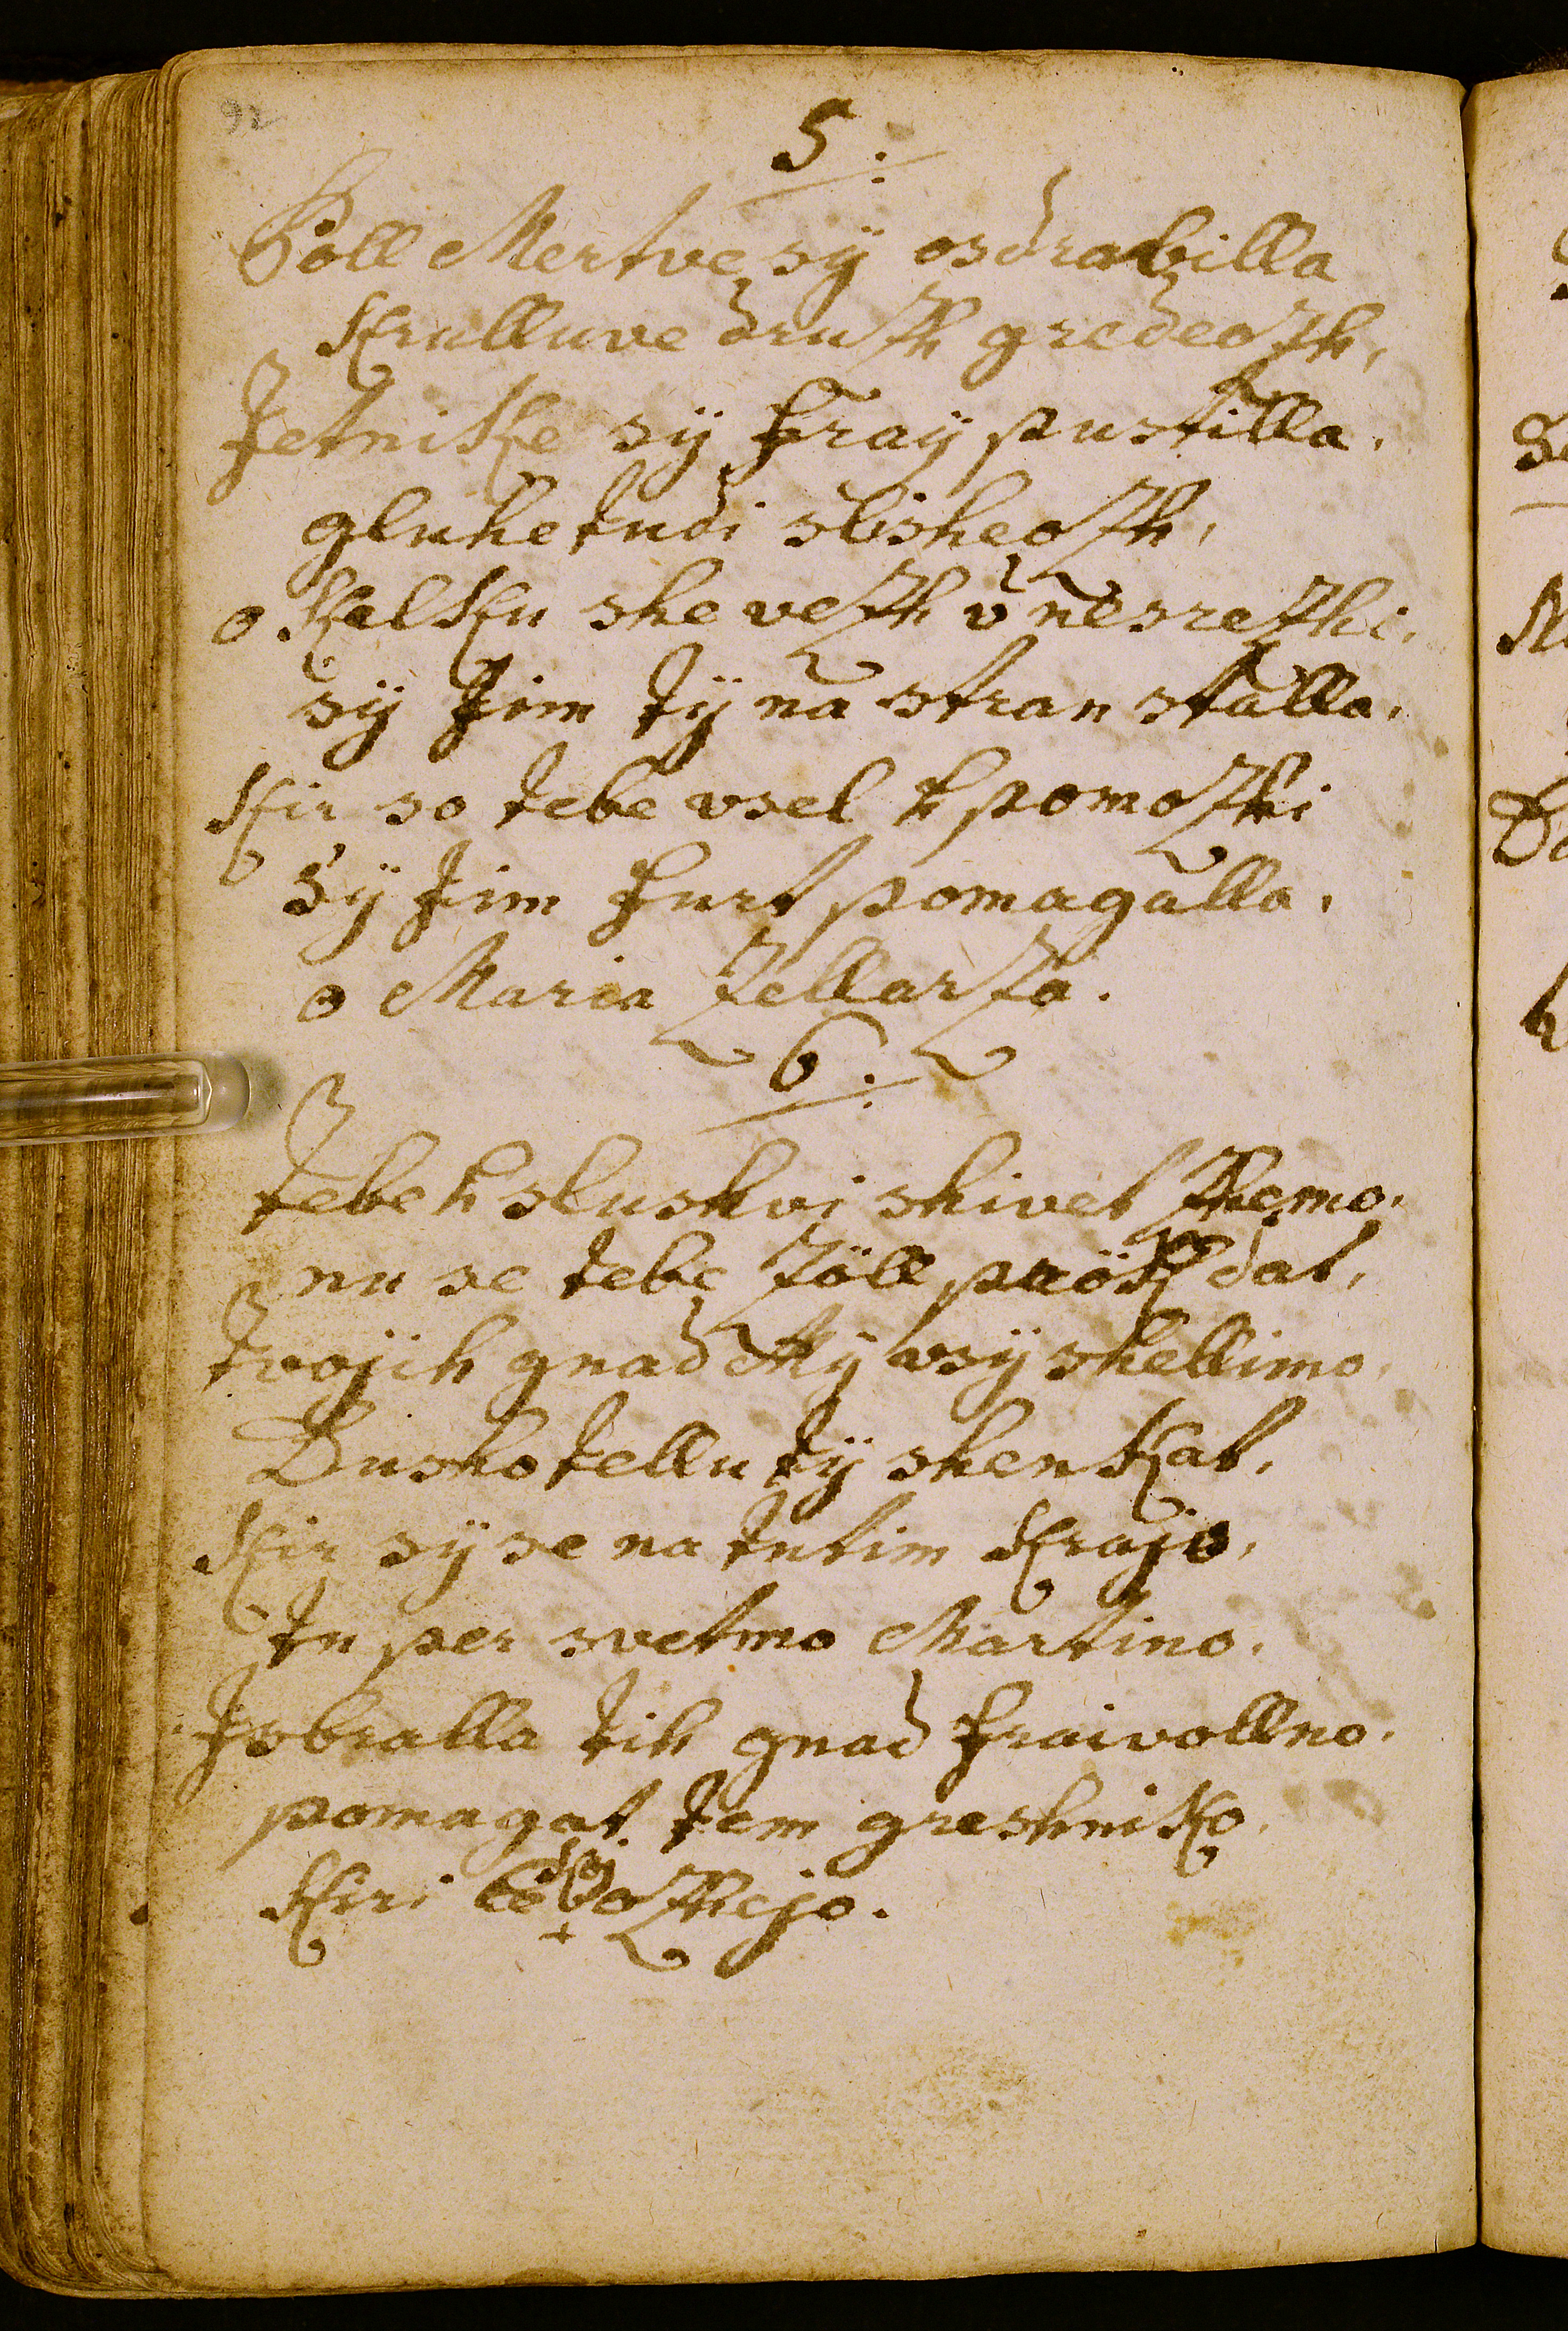 92
5:
Poll Mertve sÿ osdravilla
Krulluve druzh gredeozh,
Jetnike sÿ fraÿ pustilla.
gluhe tudi slisheozh,
o kalku she vezh v nesrezhi.
sÿ Jim tÿ na stran stalla.
Kir so tebe vsel k pomozhi
Sÿ Jim furt pomagalla.
o Maria Zellarza.
6:
tebe k slushvi shivet zhemo.
nu se tebe zöll dat,
tvojih gnad Mÿ vsÿ shellimo.
Dusho tellu tÿ shenkat,
Kir sÿ se na tutim Krajo.
tu per svetmo Martino.
Jsbralla tih gnad fraivollno.
pomagat tem greshniko.
Kiri ozhejo.